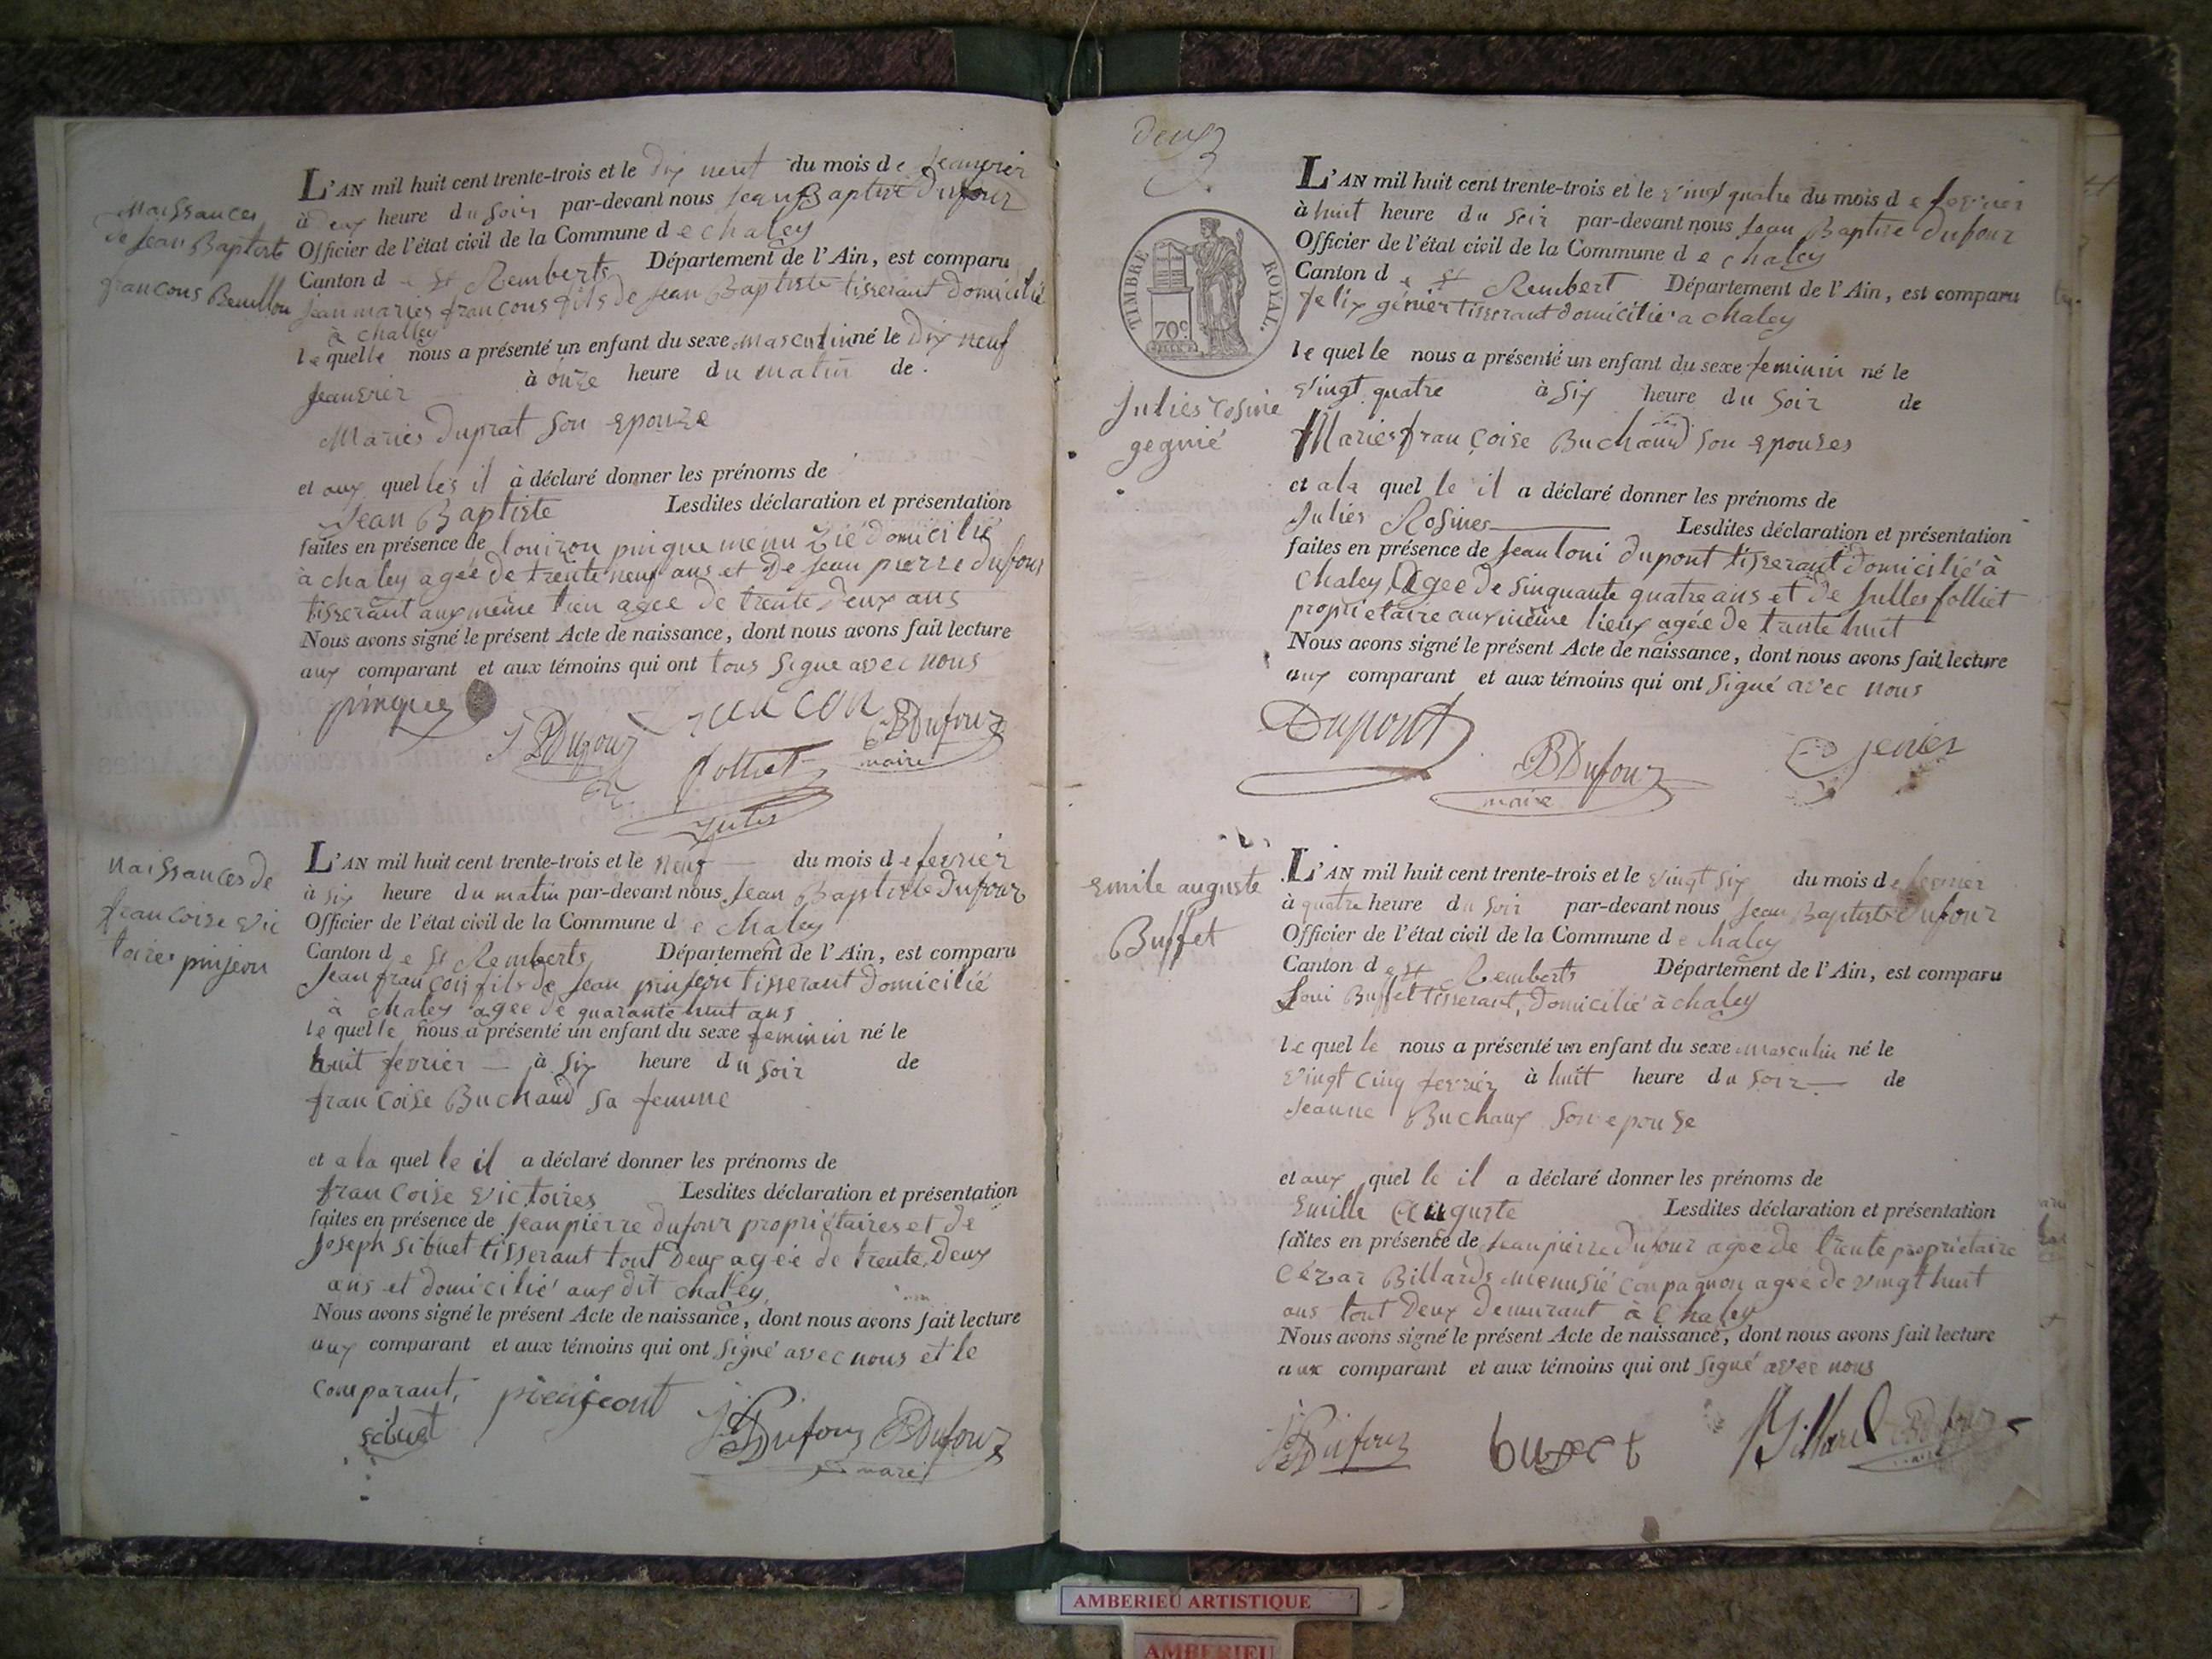 Naissances
de Jean Baptiste
francons
L'AN mil huit cent trente-trois et le dix neuf du mois de Jeanvier
à deux heure du soir par-devant nous Jean Baptiste Dufour
Officier de l'état civil de la Commune de chaley
Canton de St Remberts Département de l'Ain, est comparu
Jean maries francons fils de Jean Baptiste tisserant domicilié
à challey
lequelle nous a présenté un enfant du sexe masculin né le dix neuf
Jeanvier à onze heure du matin de
Maries Duprat son epouze
et aux quelles il a déclaré donner les prénoms de
Jean Baptiste Lesdites déclaration et présentation
faites en présence de domicilié
à chaley agée de trente neuf ans et de Jean pierre dufour
tisserant aux même lieu agee de trente deux ans
Nous avons signé le présent Acte de naissance, dont nous avons fait lecture
aux comparant et aux témoins qui ont tous signe avec nous
JP Dufour JB Dufour
folliet maire
Jules
Naissances de
francoise vic
toires pinjeon
L'AN mil huit cent trente-trois et le neuf du mois de fevrier
à six heure du matin par-devant nous Jean Baptiste Dufour
Officier de l'état civil de la Commune de chaley
Canton de St Remberts Département de l'Ain, est comparu
Jean françois fils de Jean pinjeon tisserant domicilié
à chaley agee de quarante huit ans
lequelle nous a présenté un enfant du sexe feminin né le
huit fevrier à six heure du soir de
françoise Buchaud sa femme
et a la quelle il a déclaré donner les prénoms de
francoise victoires Lesdites déclaration et présentation
faites en présence de Jean pierre dufour propriétaires et de
Joseph sibuet tisserant tout deux agée de trente deux
ans et domicilié aux dit chaley
Nous avons signé le présent Acte de naissance, dont nous avons fait lecture
aux comparant et aux témoins qui ont signé avec nous et le
comparant,
sibuet JP Dufour JB Dufour
maire
deux
TIMBRE ROYAL.
70c
Julies rosine
gegnié
L'AN mil huit cent trente-trois et le vingt quatre du mois de fevrier
à huit heure du soir par-devant nous Jean Baptise Dufour
Officier de l'état civil de la Commune de chaley
Canton de St Rembert Département de l'Ain, est comparu
felix génier tisserant domicilié a chaley
lequelle nous a présenté un enfant du sexe feminin né le
vingt quatre à six heure du soir de
Maries françoise Buchaud son epouses
et a la quelle il a déclaré donner les prénoms de
Julies Rosines Lesdites déclaration et présentation
faites en présence de Jean loui dupont tisserant domicilié à
chaley agee de sinquante quatre ans et de Julles folliet
propriétaire aux même lieux agée de trante huit
Nous avons signé le présent Acte de naissance, dont nous avons fait lecture
aux comparant et aux témoins qui ont signé avec nous
Dupont JB Dufour genier
maire
Emile auguste
Buffet
L'AN mil huit cent trente-trois et le vingt six du mois de fevrier
à quatre heure du soir par-devant nous Jean Baptiste Dufour
Officier de l'état civil de la Commune de chaley
Canton de St Remberts Département de l'Ain, est comparu
Loui Buffet tisserant, domicilié à chaley
lequelle nous a présenté un enfant du sexe masculin né le
vingt cinq fevrier à huit heure du soir de
Jeanne Buchaux son epouse
et aux quelle il a déclaré donner les prénoms de
Emille Auguste Lesdites déclaration et présentation
faites en présence de Jean pierre dufour agee de trente propriétaire
Cézar Billards menusié conpagnon agée de vingt huit
ans tout deux demurant à chaley
Nous avons signé le présent Acte de naissance, dont nous avons fait lecture
aux comparant et aux témoins qui ont signé avec nous
JP Dufour Billard JB Dufour
AMBERIEU ARTISTIQUE
AMBERIEU